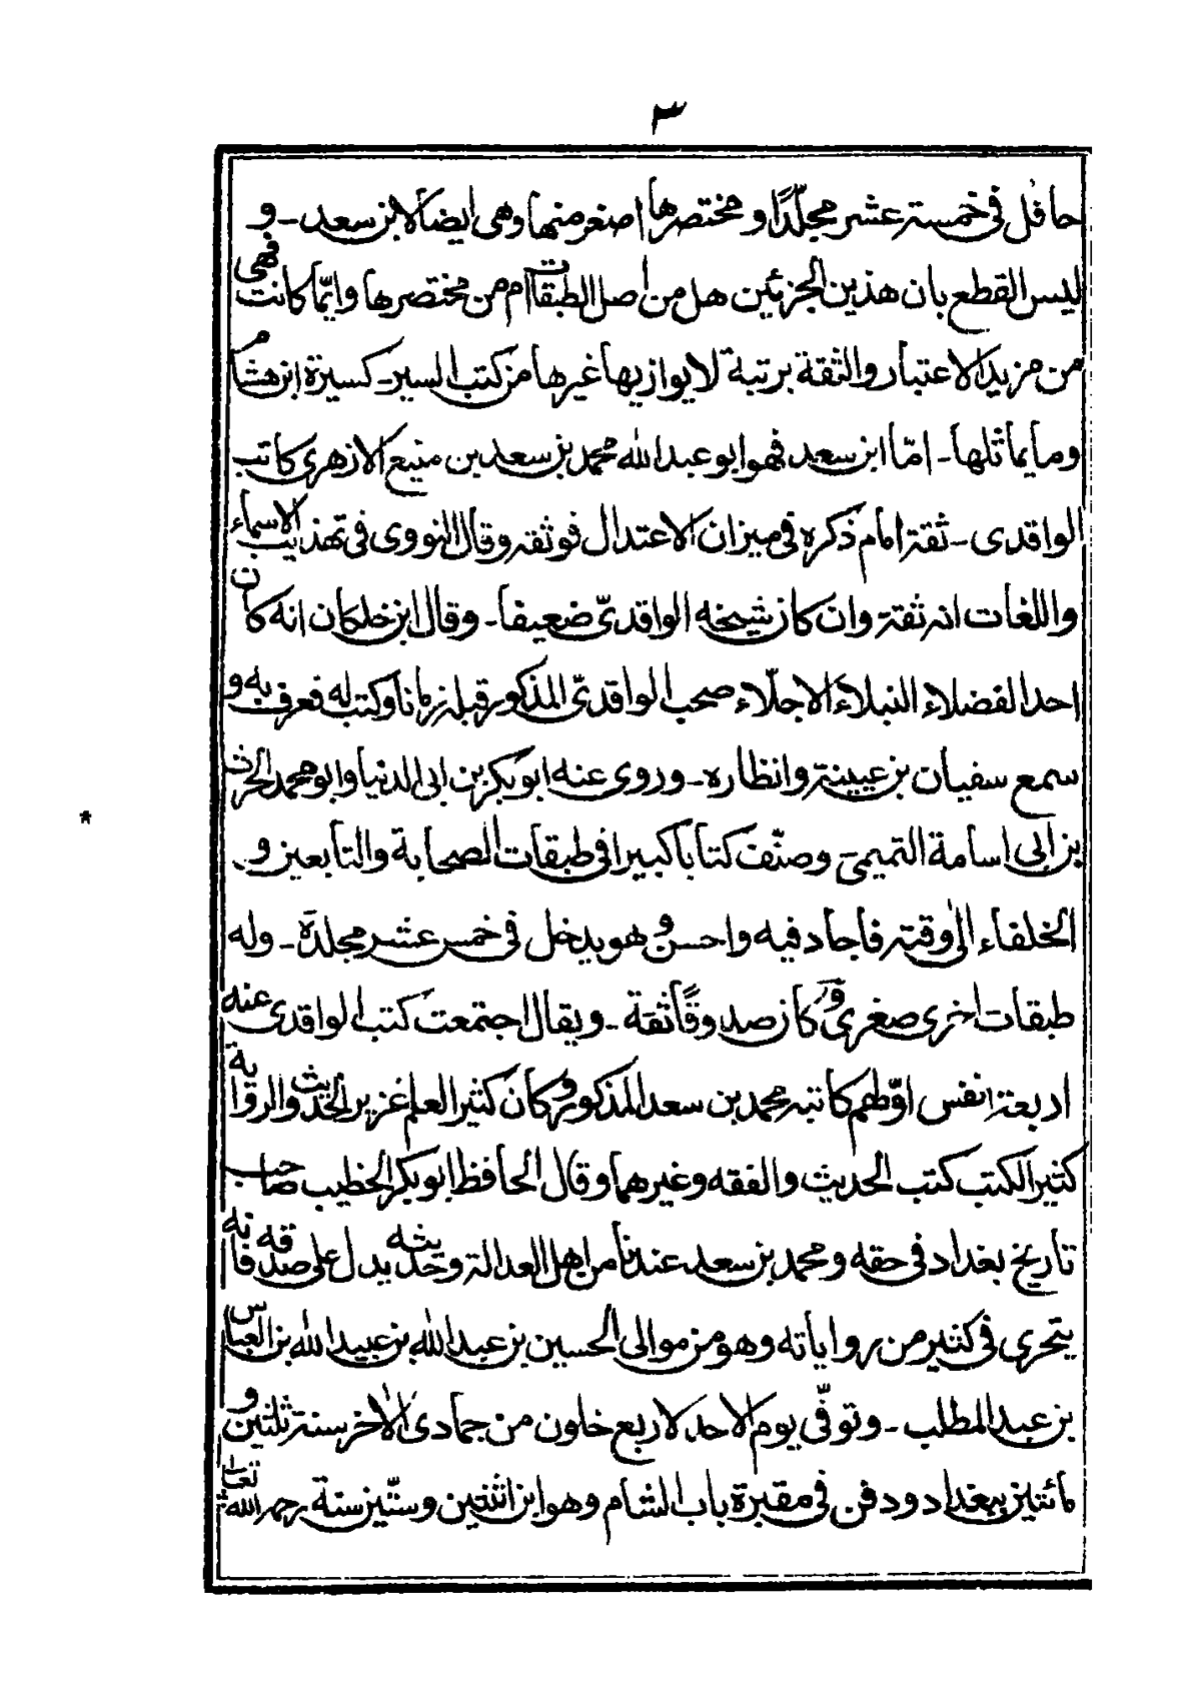 ٣
حافل في خمسة عشر مجلّدًا و مختصرها اصغر منها وهى ايضا لابن سعد ـ و
ليس القطع بان هذين الجزئين هل من اصل الطبقات ام من مختصرها وايّما كانت فهى
من مزيد الاعتبار والثقة برتبة لا يوازيها غيرها من كتب السير ـ كسيرة ابن هشام
وما يماثلها ـ امّا ابن سعد فهو ابو عبد الله محمد بن سعد بن منيع الازهرى كاتب
الواقدى ـ ثقة امام ذكره في ميزان الاعتدال فوثقه وقال النووى في تهذيب الاسماء
واللغات انه ثقة وان كان شيخه الواقدىّ ضعيفا ـ وقال ابن خلكان انه كان
احد الفضلاء النبلاء الاجلّاء صحب الواقدىّ المذكور قبله زمانا وكتب له فعرف به و
سمع سفيان بن عيينة وانظاره ـ وروى عنه ابو بكر بن ابى الدنيا وابو محمد الحرث
بن ابى اسامة التميمى وصنّف كتابا كبيرا في طبقات الصحابة والتابعين و
الخلفاء الى وقته فاجاد فيه واحسن و هو يدخل في خمس عشر مجلدة ـ وله
طبقات اخرى صغرى و كان صدوقًا ثقة ـ ويقال اجتمعت كتب الواقدى عنه
اربعة انفس اوّلهم كاتبه محمد بن سعد المذكور و كان كثير العلم غزير الحديث والرواية
كثير الكتب كتب الحديث والفقه وغيرهما وقال الحافظ ابو بكر الخطيب صاحب
تاريخ بغداد في حقه ومحمد بن سعد عندنا من اهل العدالة وحديثه يدل على صدقه فانه
يتحرى في كثير من رواياته وهو من موالى الحسين بن عبد الله بن عبيد الله بن العباس
بن عبد المطلب ـ وتوفّى يوم الاحد لاربع خلون من جمادى الاخر سنة ثلثين و
مائتين ببغداد ودفن في مقبرة باب الشام وهو ابن اثنتين وستّين سنة رحمه الله تعالى
*